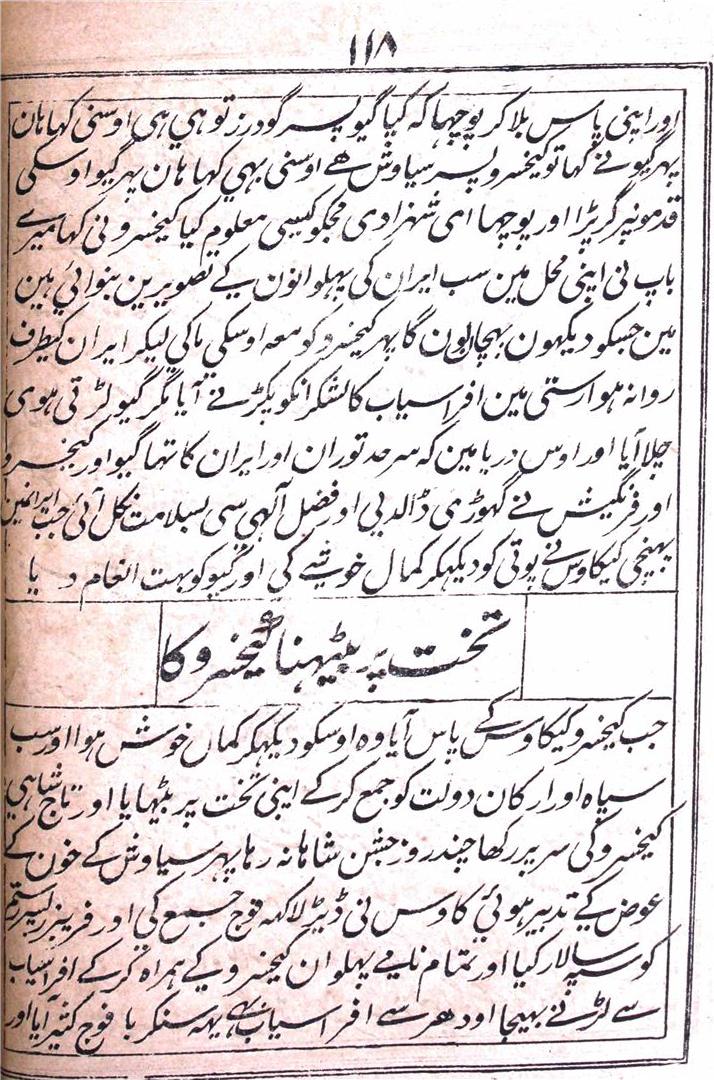 ۱۱۸
اور اپنی پاس بلا کر پوچھا کہ کیا گیو پسر گودرز تو ہی ہی اوسنی کہا ہان
پہر گیو نے کہا تو کیخسرو پسر سیاوش ہے اوسنی بہی کہا ہان پہر گیو اوسکی
قدمونپر گر پڑا اور پوچہا ای شہزادی مجکو کیسی معلوم کیا کیخسرو نی کہا میرے
باپ نی اپنی محل مین سب ایران کی پہلوانون کے تصویرین بنوائی ہین
مین جسکو دیکہون پہچان لون گا پہر کیخسرو کو معہ اوسکی ماکی لیکر ایران کیطرف
روانہ ہوا رستی مین افراسیاب کا لشکر انکو پکڑنے آیا مگر گیو لڑتی ہوی
چلا آیا اور اوس دریا مین کہ سرحد توران اور ایران کا تہا گیو اور کیخسرو
اور فرنگیش نے گہوڑی ڈالدیی اور فضل آلہی سی بسلامت نکل آئی جب ایرانمین
پہنچی کیکاوس نے پوتی کو دیکہکر کمال خوشے کی اور گیو کو بہت انعام دیا
تخت پر بیٹہنا کیخسرو کا
جب کیخسرو کیکاوس کے پاس آیا وہ اوسکو دیکہکر کمال خوش ہوا اور سب
سپاہ اور ارکان دولت کو جمع کر کے اپنی تخت پر بٹہایا اور تاج شاہی
کیخسرو کی سر پر رکہا چند روز جشن شاہانہ رہا پہر سیاوش کے خون کے
عوض کے تدبیر ہوئی کاوس نی ڈیڑ لاکہہ فوج جمع کی اور فریبرز
کو سپہ سالار کیا اور تمام نامے پہلوان کیخسرو کے ہمراہ کر کے افراسیاب
سے لڑنے بہیجا اودھر سے افراسیاب بہی یہہ سنکر با فوج کثیر آیا اور